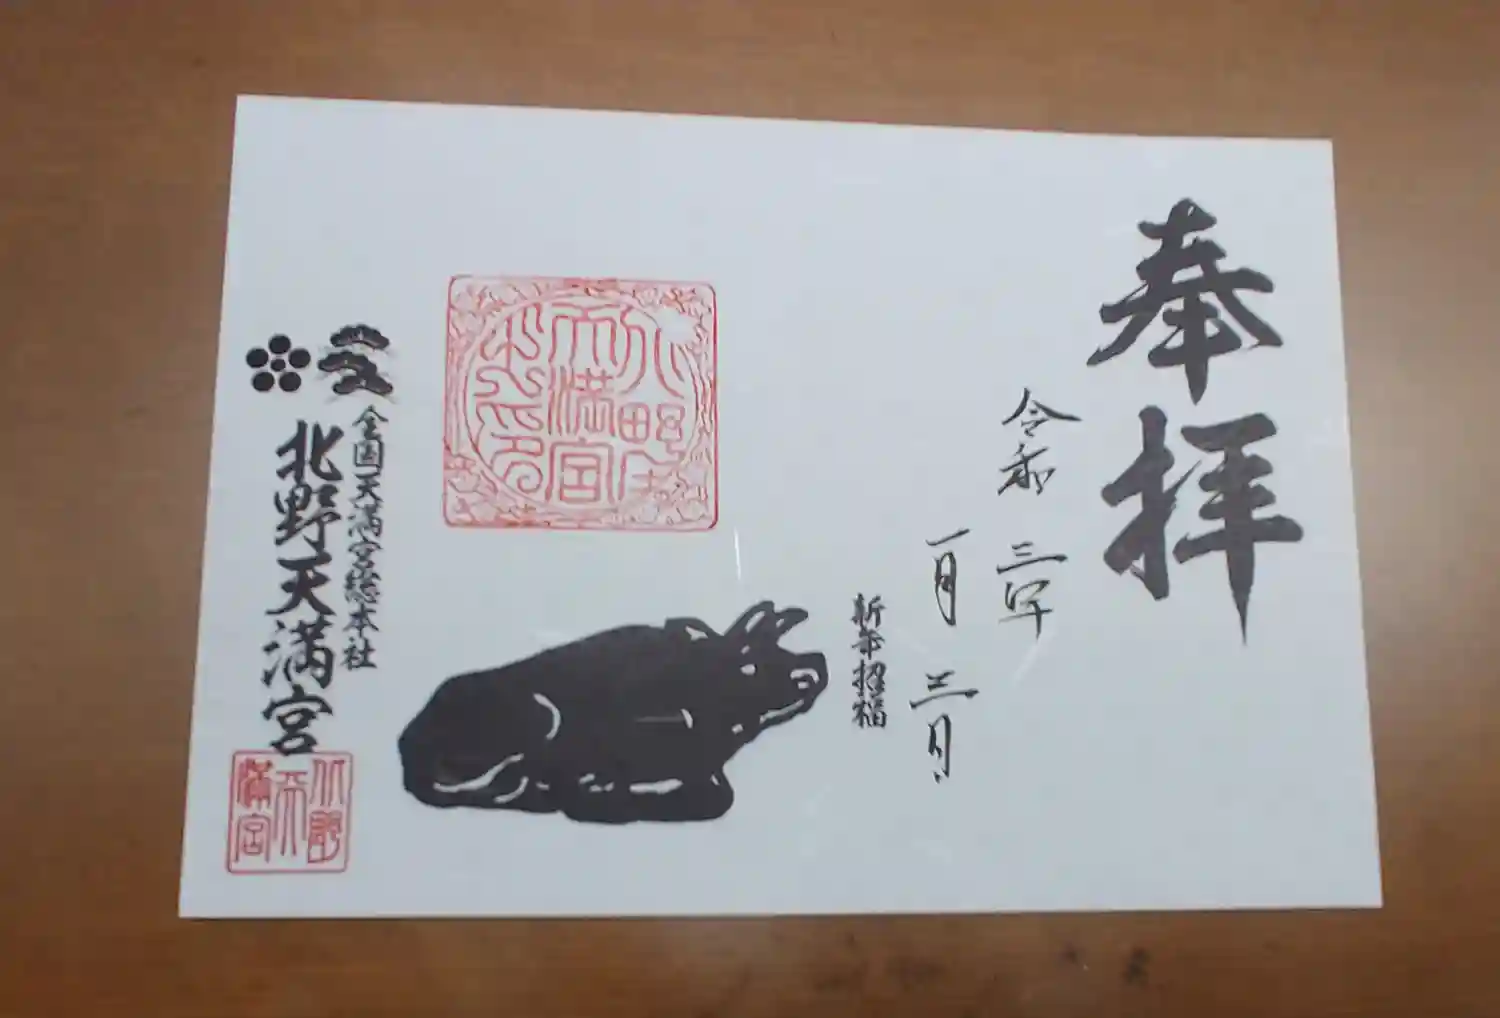 奉拝
令和三年
一月三日
新年招福
北野天満宮之印
全国天満宮総本社
北野天満宮
北野天満宮